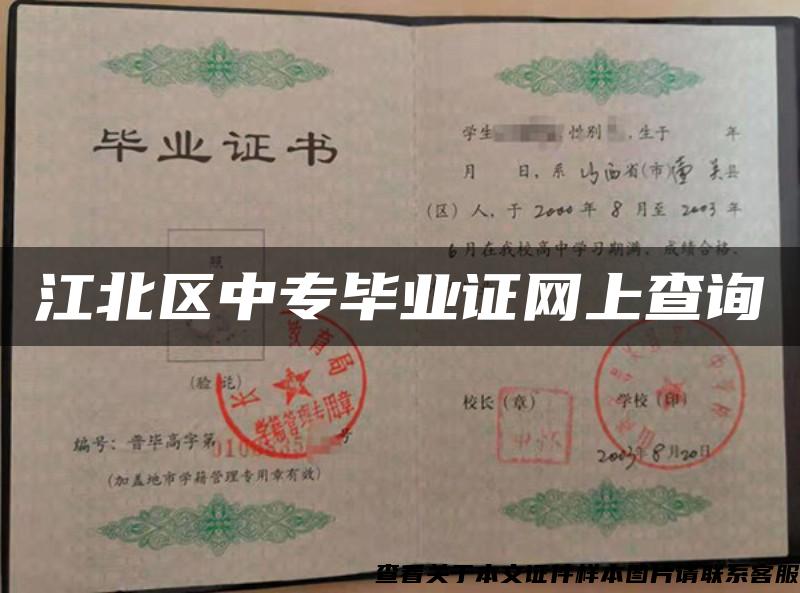 毕业证书
学生 性别 ,生于 年
月 日,系 山西省(市)潼关县
(区)人,于 2000 年 8 月至 2003 年
6 月在我校高中学习期满,成绩合格,
江北区中专毕业证网上查询
照
(验 讫)
教育局
学籍管理专用章
编号:晋毕高字第 号
(加盖地市学籍管理专用章有效)
校长(章)
学校(印)
2003年8月20日
查看关于本文证件样本图片请联系客服